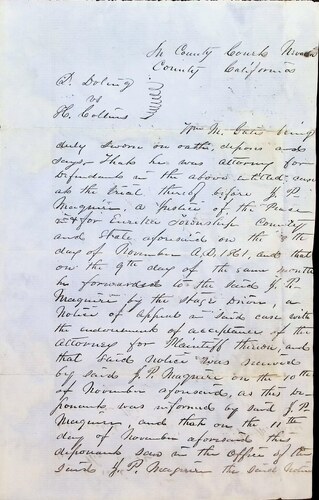 In County Court Nevada
County California
D. Doling
vs
H. Collins
Wm M. Gates being
duly sworn on oath, deposes and
says, That he was attorney for
Defendants in the above entitled
at the trial thereof before J. P.
Maguire, a Justice of the Peace
in & for Eureka Township County
and State aforesaid on the 7th
day of November A.D. 1861, and that
on the 9th day of the same month
he forwarded to the said J. P.
Maguire by the Stage Driver, a
Notice of Appeal in said case with
the endorsement of acceptance of the
Attorney for Plaintiff thereon, and
that said notice was received
by said J. P. Maguire on the 10th
of November aforesaid, as this de-
ponent was informed by said J. P.
Maguire, and that on the 11th
day of November aforesaid this
deponent saw in the Office of the
said J. P. Maguire the said Notice